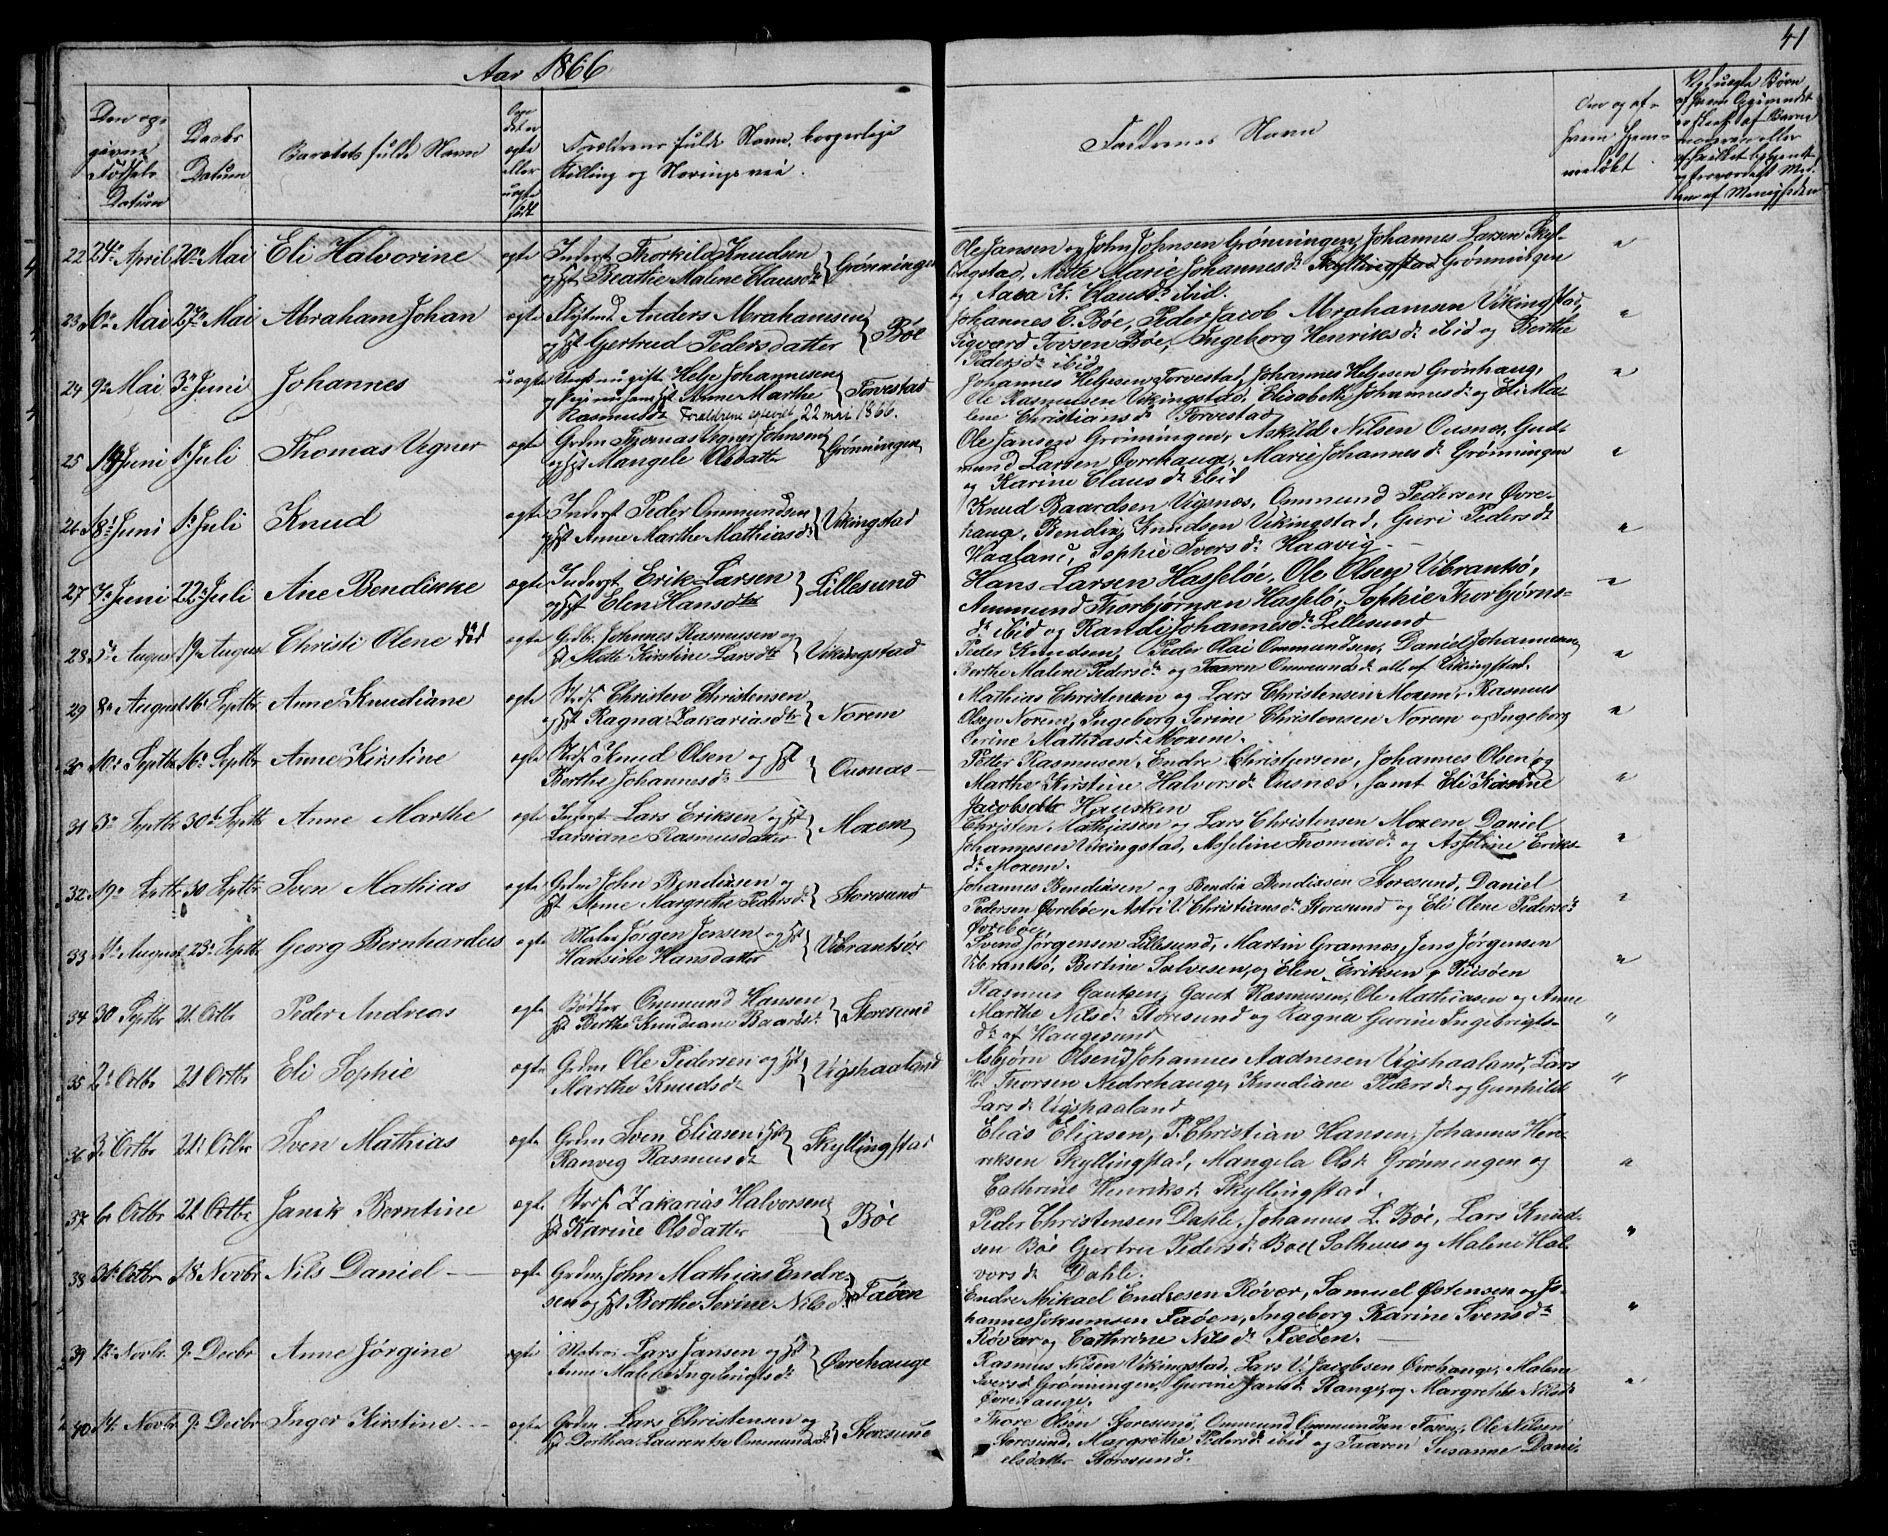 41
Aar 1866
Den op-
givne
Fødsels
Datum
Daabs
Datum
Barnets fulde Navn
ægte
eller
uægte
født
Forældrenes fulde Navn, borgerlige
Stilling og Næringsvei.
Faddernes Navn
Om og af
hvem hjem-
medøbt
22 24de April 20de Mai Eli Halvorine ægte Inderst Thorkild Knudsen
og Hst Beathe Malene Clausdtr } Grønningen
Ole Jansen og John Johnsen Grønningen, Johannes Larsen Skyl-
lingstad, Mette Marie Johannesdr Skyllingstad Grønningen
og Aasa K. Clausdr ibid.
23 6te Mai 27de Mai Abraham Johan ægte Anders Abrahamsen
og Hst Gjertrud Pedersdatter } Bøe
Johannes C. Bøe, Peder Jacob Abrahamsen Vikingstad,
Sigvard Tovsen Bøe, Ingeborg Henriksdr ibid og Berthe
Pedersdr ibid
24 9de Mai 3de Juni Johannes uægte Ungk. ugift Helje Johannesen
og Pige Anne Marthe } Torvestad
Rasmusdr Forældrene egteviet 22 mai 1866.
Johannes Heljesen Torvestad, Johannes Heljesen Grønhaug,
Ole Rasmussen Vikingstad, Elisabeth Johannesdr og Eli Ma-
lene Christiansdr Torvestad
25 14 Juni 1 Juli Thomas Vegner ægte Grdm Thomas Vegner Johnsen
og Hst Mangele Olsdatter } Grønningen
Ole Jansen Grønningen, Askild Nilsen Ousnes, Gud-
mund Larsen Øvrehauge, Marie Johannesdr Grønningen
og Karine Clausdr ibid
26 18de Juni 1ste Juli Knud ægte Inderst Peder Ommundsen
og Hst Anne Marthe Mathiasdr } Vikingstad
Knud Baardsen Vigsnes, Ommund Pedersen Øvre-
haug, Bendix Knudsen Vikingstad, Guri Pedersdr
Vaaland, Sophie Iversdr Haavig.
27 7de Juni 22de Juli Ane Bendikke ægte Inderst Erik Larsen
og Hst Elen Hansdtr } Lillesund
Hans Larsen Hasseløe, Ole Olsen Vibrantsø,
Ammund Thorbjørnsen Hasselø, Sophie Thorbjørns-
dr ibid og Randi Johannesdr Lillesund
28 5te August 19 August Christi Olene død ægte Gdbr. Johannes Rasmusen og
Hst Mette Kirstine Larsdtr } Vikingstad
Peder Knudsen, Peder Olai Ommundsen, Daniel Johannesen,
Berthe Malene Pedersdr og Taaren Ommundsdr alle af Vikingstad.
29 8de August 16de Septbr Anne Knudiane ægte Strds. Christen Christensen
og Hst Ragna Zakariasdtr } Norem
Mathias Christensen og Lars Christensen Moxem, Rasmus
Olsen Norem, Ingeborg Serine Christensen Norem og Ingeborg
Serine Mathiasdr Moxem.
30 10de Septbr 16de Septbr Anne Kirstine ægte Strds. Knud Olsen og Hst
Berthe Johannesdr } Ousnæs
Petter Rasmusen, Endre Christensen, Johannes Olsen og
Marthe Kirstine Halvorsdr Ousnæs, samt Eli Karine
Jacobsdtr Hausken
31 3de Septbr 30te Septbr Anne Marthe ægte Inderst Lars Eriksen og Hst
Larsiane Rasmusdatter } Moxem
Christen Mathissen og Lars Christensen Moxem, Daniel
Johannesen Vikingstad, Asseline Thomasdr og Asseline Eriks-
dr Moxem.
32 19de Septbr 30 Septbr Sven Mathias ægte Grdm John Bendixsen og
Hst Anne Margrethe Pedersdr } Storesund
Johannes Bendixsen og Bendix Bendixsen Storesund, Daniel
Pedersen Øvrebøe, Astri V. Christiansdr Storesund og Eli Olene Pedersdr
Øvrebøe
33 August 23de Septbr Georg Bernhardus ægte Maler Jørgen Jensen og Hst
Hansine Hansdatter } Vibrantsøe
Svend Jørgensen Lillesund, Martin Grannæs, Jens Jørgensen
Vibrantsø, Bertine Salvesen, og Elen Eriksen p Risøen
34 30 Septbr 21 Octbr Peder Andreas ægte Bødker Ommund Hansen
Hst Berthe Knudiane Baardsdr } Storesund
Rasmus Gautsen, Gaut Rasmusen, Ole Mathiasen og Anne
Marthe Nilsdr Storesund og Ragna Gurine Ingebrigts-
dr af Haugesund
35 2de Octbr 21 Octbr Eli Sophie ægte Grdm Ole Pedersen og Hst
Marthe Knudsdr } Vigshaaland
Asbjørn Olsen, Johannes Aadnesen Vigshaaland, Lars
Thorsen Nedrehauge, Knudiane Pedersdr og Gunhilde
Larsdr Vigshaaland
36 3de Octbr 21de Octbr Sven Mathias ægte Grdm Sven Eliasen, Hst
Ranveg Rasmusdr } Skyllingstad
Elias Eliasen, P. Christian Hansen, Johannes Hen-
riksen Skyllingstad, Mangela Olsdr Grønningen og
Cathrine Henriksdr Skyllingstad.
37 6te Octbr 21 Octbr Janik Berntine ægte Strds. Zakarias Halvorsen
Hst Karine Olsdatter } Bøe
Peder Christensen Dahle, Johannes L. Bøe, Lars Knud-
sen Bøe Gjertru Pedersdr Solhuus og Malene Hal-
vorsdr Dahle
38 Octbr 18 Novbr Nils Daniel ægte Grdm. John Mathias Endre-
sen og Hst Berthe Serine Nilsdr } Faøen
Endre Mikael Endresen Røvær, Samuel Østensen og Jo-
hannes Jokumsen Faøen, Ingeborg Karine Svensdr
Røvær og Cathrine Nilsdr Faøen.
39 Novbr. 9de Decbr Anne Jørgine ægte Matros Lars Jansen og Hst
Anne Malene Ingebrigtsdr } Øvrehauge
Rasmus Nilsen Vikingstad, Lars V. Jacobsen Øvrehauge, Malena
Iversdr Grønningen, Gurine Jansdr Stange, og Margrethe Nilsdr
Øvrehauge.
40 14 Novbr 9de Decbr Inger Kirstine ægte Grdm. Lars Christensen og
Hst Dorthea Laurentse Ommundsdr } Storesund
Thore Olsen Storesund, Ommund Ommundsen Fosen, Ole Nilsen
Storesund, Margrethe Pedersdr ibid og Taaren Susanne Dani-
elsdatter Storesund.